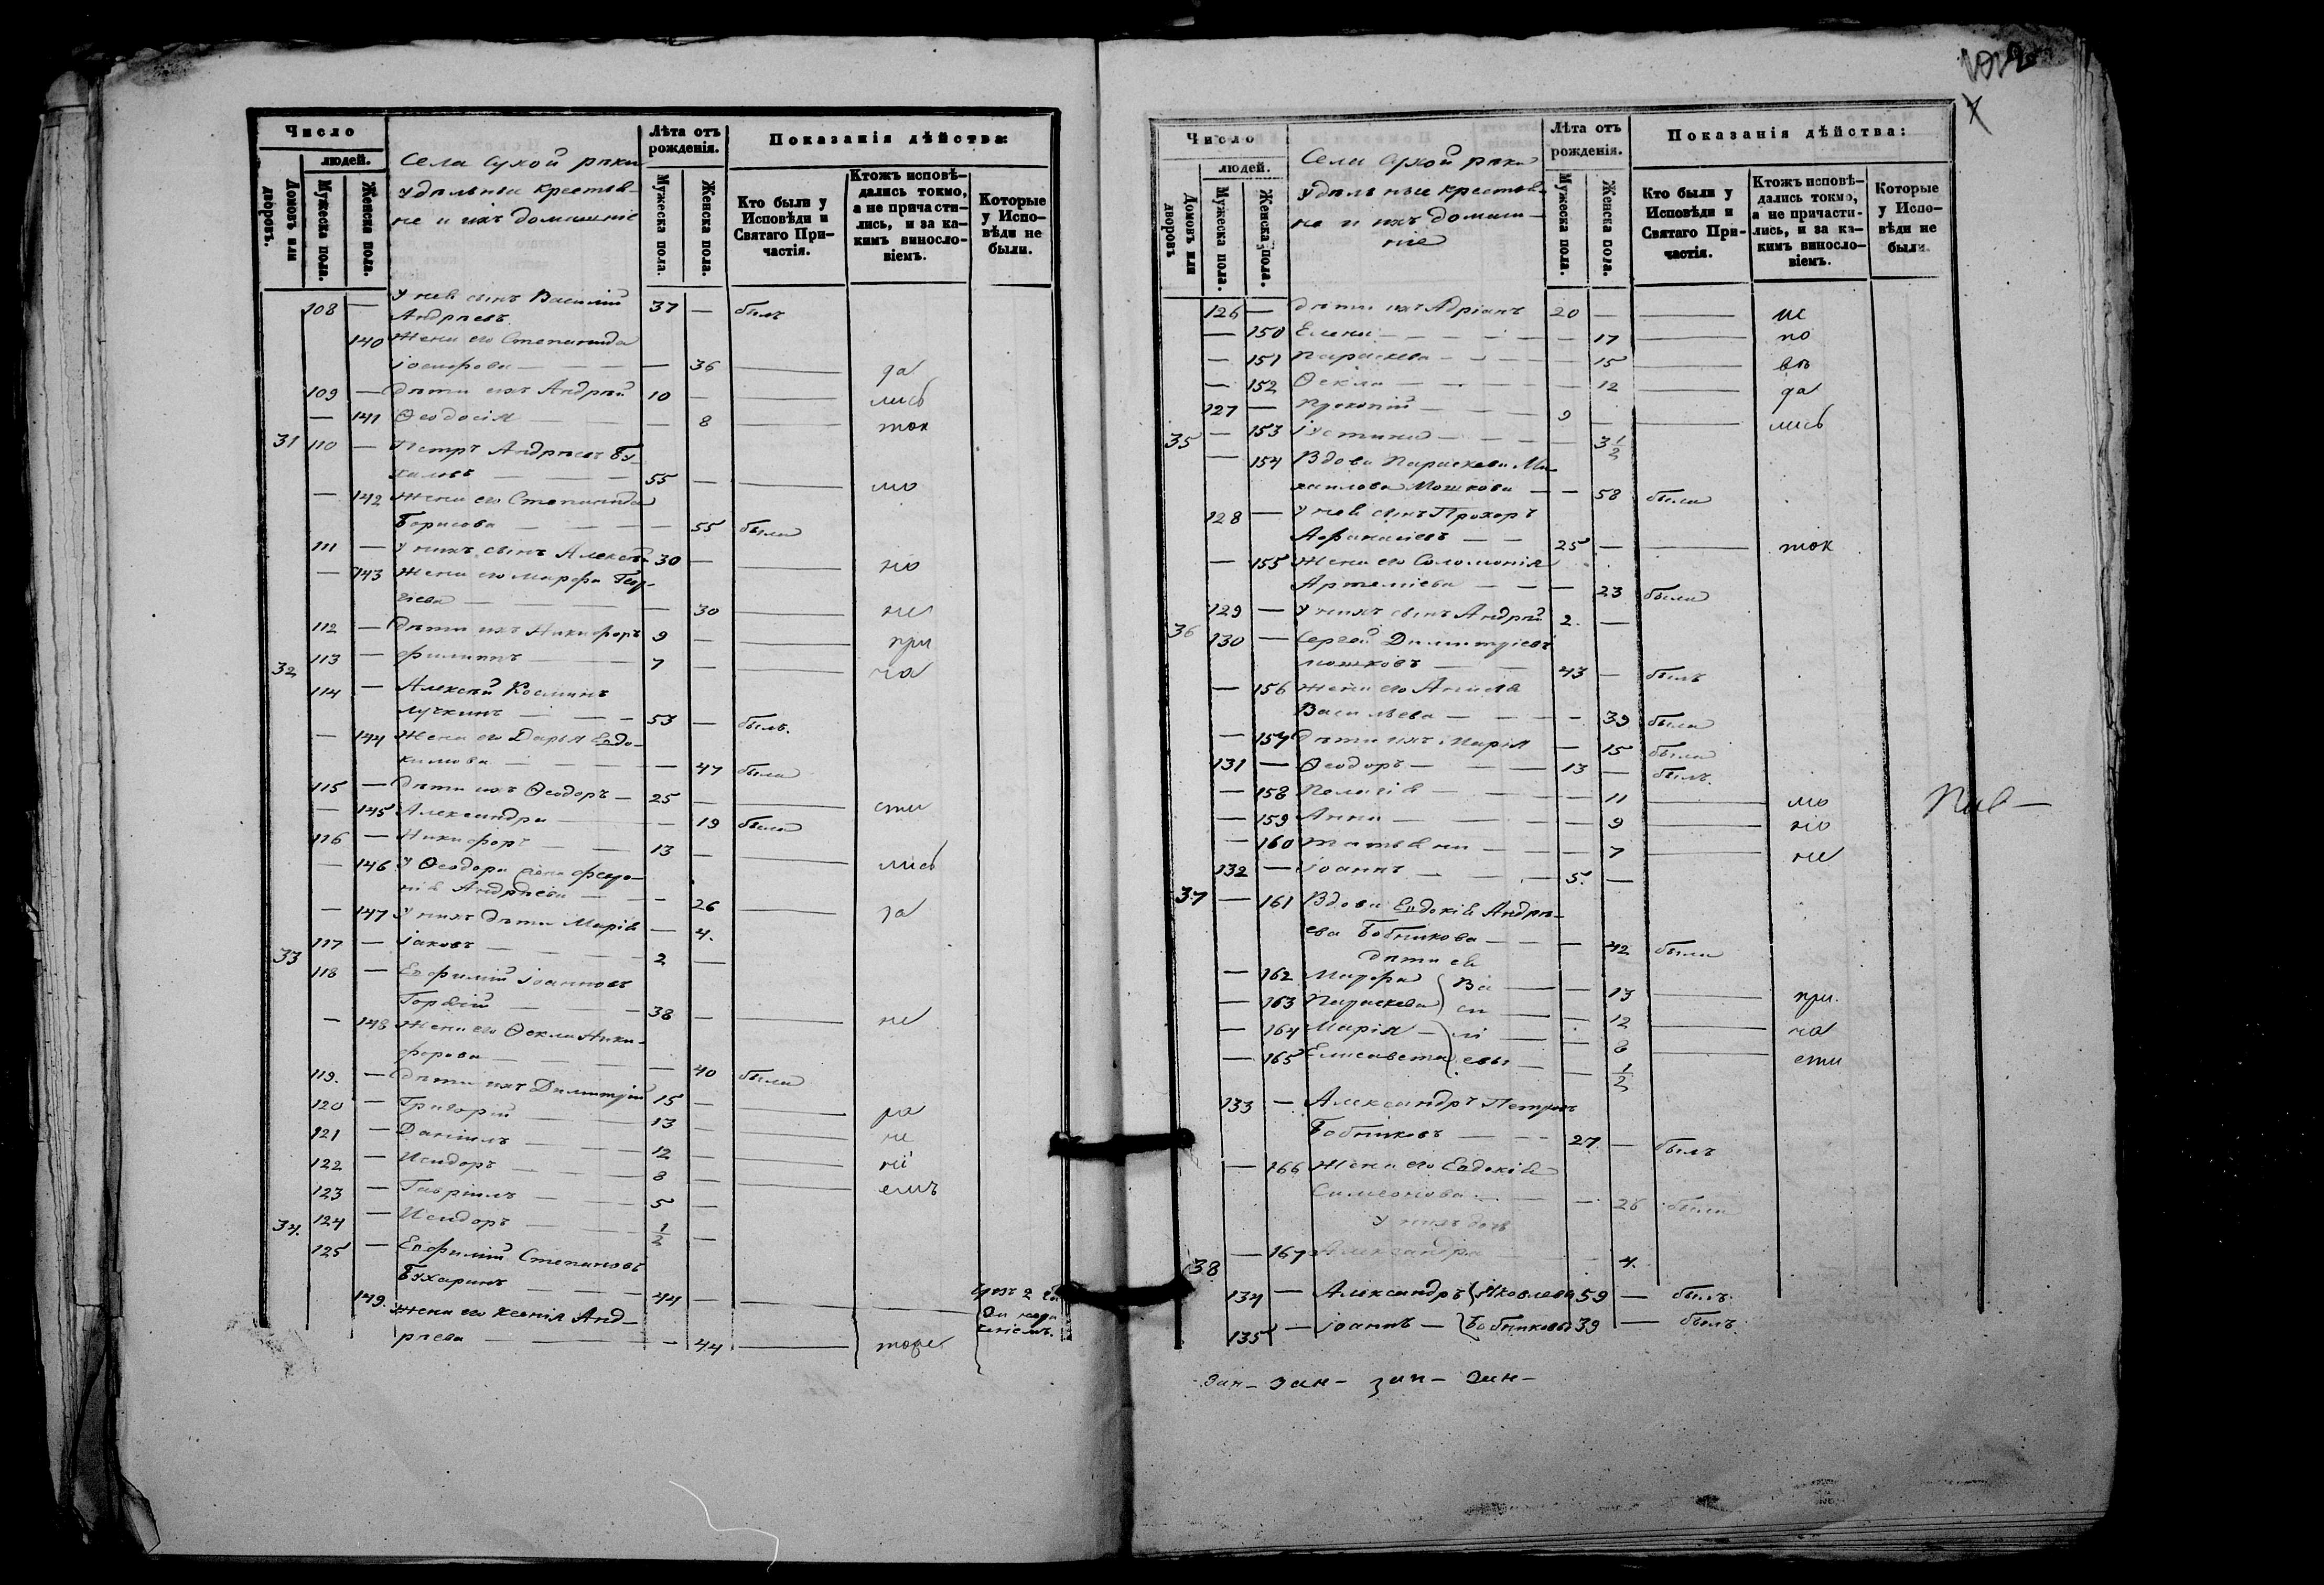 Число
людей.
Домовъ или дворовъ.
Мужеска пола.
Женска пола.
Села Сухой рѣки
удѣльные крестья-
не и ихъ домашніе
Лѣта отъ рожденія.
Мужеска пола.
Женска пола.
Показанія дѣйства:
Кто были у Исповѣди и Святаго При-частія.
Ктожъ исповѣ-дались токмо, а не причасти-лись, и за ка-кимъ винносло-віемъ.
Которые у Испо-вѣди не были.
108 — У нея сынъ Василій
Андреевъ 37 — былъ
140 Жена его Степанида
Іосифова — — 36 — да
109 — Дѣти ихъ Андрей 10 — лись
— 141 Ѳеодосія — 8 — ток
31 110 — Петръ Андреевъ Бу-
55 — мо
— 142 Жена его Степанида
Борисова — — 55 была
111 — У нихъ сынъ Алексѣй 30 — но
— 143 Жена его Марфа
— 30 — не
112 — Дѣти ихъ Никифоръ 9 — при
113 — Филиппъ — 7 — ча
32 114 — Алексѣй Косминъ
Лучкинъ — 53 — былъ.
— 144 Жена его Дарья Евдо-
кимова — — 47 была
115 — Дѣти ихъ Ѳеодоръ — 25 — сти
— 145 Александра — 19 была
116 — Никифоръ — 13 — лись
— 146 У Ѳеодора жена Февро-
нія Андреева — — 26 — за
— 147 У нихъ дѣти Марія — 4.
117 — Іаковъ — 2 —
33 118 — Евфимій Іоанновъ
38 — не
— 148 Жена его Ѳекла Ники-
форова — — 40 была
119. — Дѣти ихъ Димитрій 15 — ра
120 — Григорій — 13 — че
121 — Даніилъ — 12 — ні
122 — Исидоръ — 8 — емъ
123 — Гавріилъ — 5 —
124 — Исидоръ — 1/2 —
34. 125 — Евфимій Степановъ
Бухаринъ — 44 —
149. Жена его Ксенія Анд-
реева — — 44 — тоже
Число
людей.
Домовъ или дворовъ
Мужеска пола.
Женска пола.
Села Сухой рѣки
удѣльные крестья-
не и ихъ домаш-
ніе
Лѣта отъ рожденія.
Мужеска пола.
Женска пола.
Показанія дѣйства:
Кто были у Исповѣди и Святаго При-частія.
Ктожъ исповѣ-дались токмо, а не причасти-лись, и за ка-кимъ винносло-віемъ.
Которые у Испо-вѣди не были.
126 — Дѣти ихъ Адріанъ 20 — ис
— 150 Елена — 17 — по
— 151 Параскева — 15 — вѣ
— 152 Ѳекла — 12 — да
127 — Прокопій — 9 — лись
— 153 Іустина — 3 1/2
35 — 154 Вдова Параскева Ми-
хаилова Мошкова — — 58 была
128 — У нея сынъ Прохоръ
Афанасіевъ — 25 — ток
— 155 Жена его Соломонія
Артеміева — — 23 была
129 — У нихъ сынъ Андрей 2. —
36 130 — Сергей Димитріевъ
Мошковъ — 43 — былъ
— 156 Жена его Анисія
Васильева — — 39 была
— 157 Дѣти ихъ Марія — 15 была
131 — Ѳеодоръ — 13 — былъ.
— 158 Пелагія — 11 — мо
— 159 Анна — 9 — но
— 160 Татьяна — 7 — не
132 — Іоаннъ — 5. —
37 — 161 Вдова Евдокія Андре-
ева Бобникова — — 42 была
Дѣти ея
— 162 Марфа } Ва — 13 — при.
— 163 Параскева } си — 12 — ча
— 164 Марія } лі — 6 — сти
— 165 Елисавета } евы — 1/2
133 — Александръ Петровъ
Бобниковъ — 27 — былъ
— 166 Жена его Евдокія
Симеонова — — 26 была
У нихъ дочь
— 167 Александра — 4.
38 134 — Александръ } Яковлевы 59 — былъ.
135 — Іоаннъ — } Бобниковы 39 — былъ.